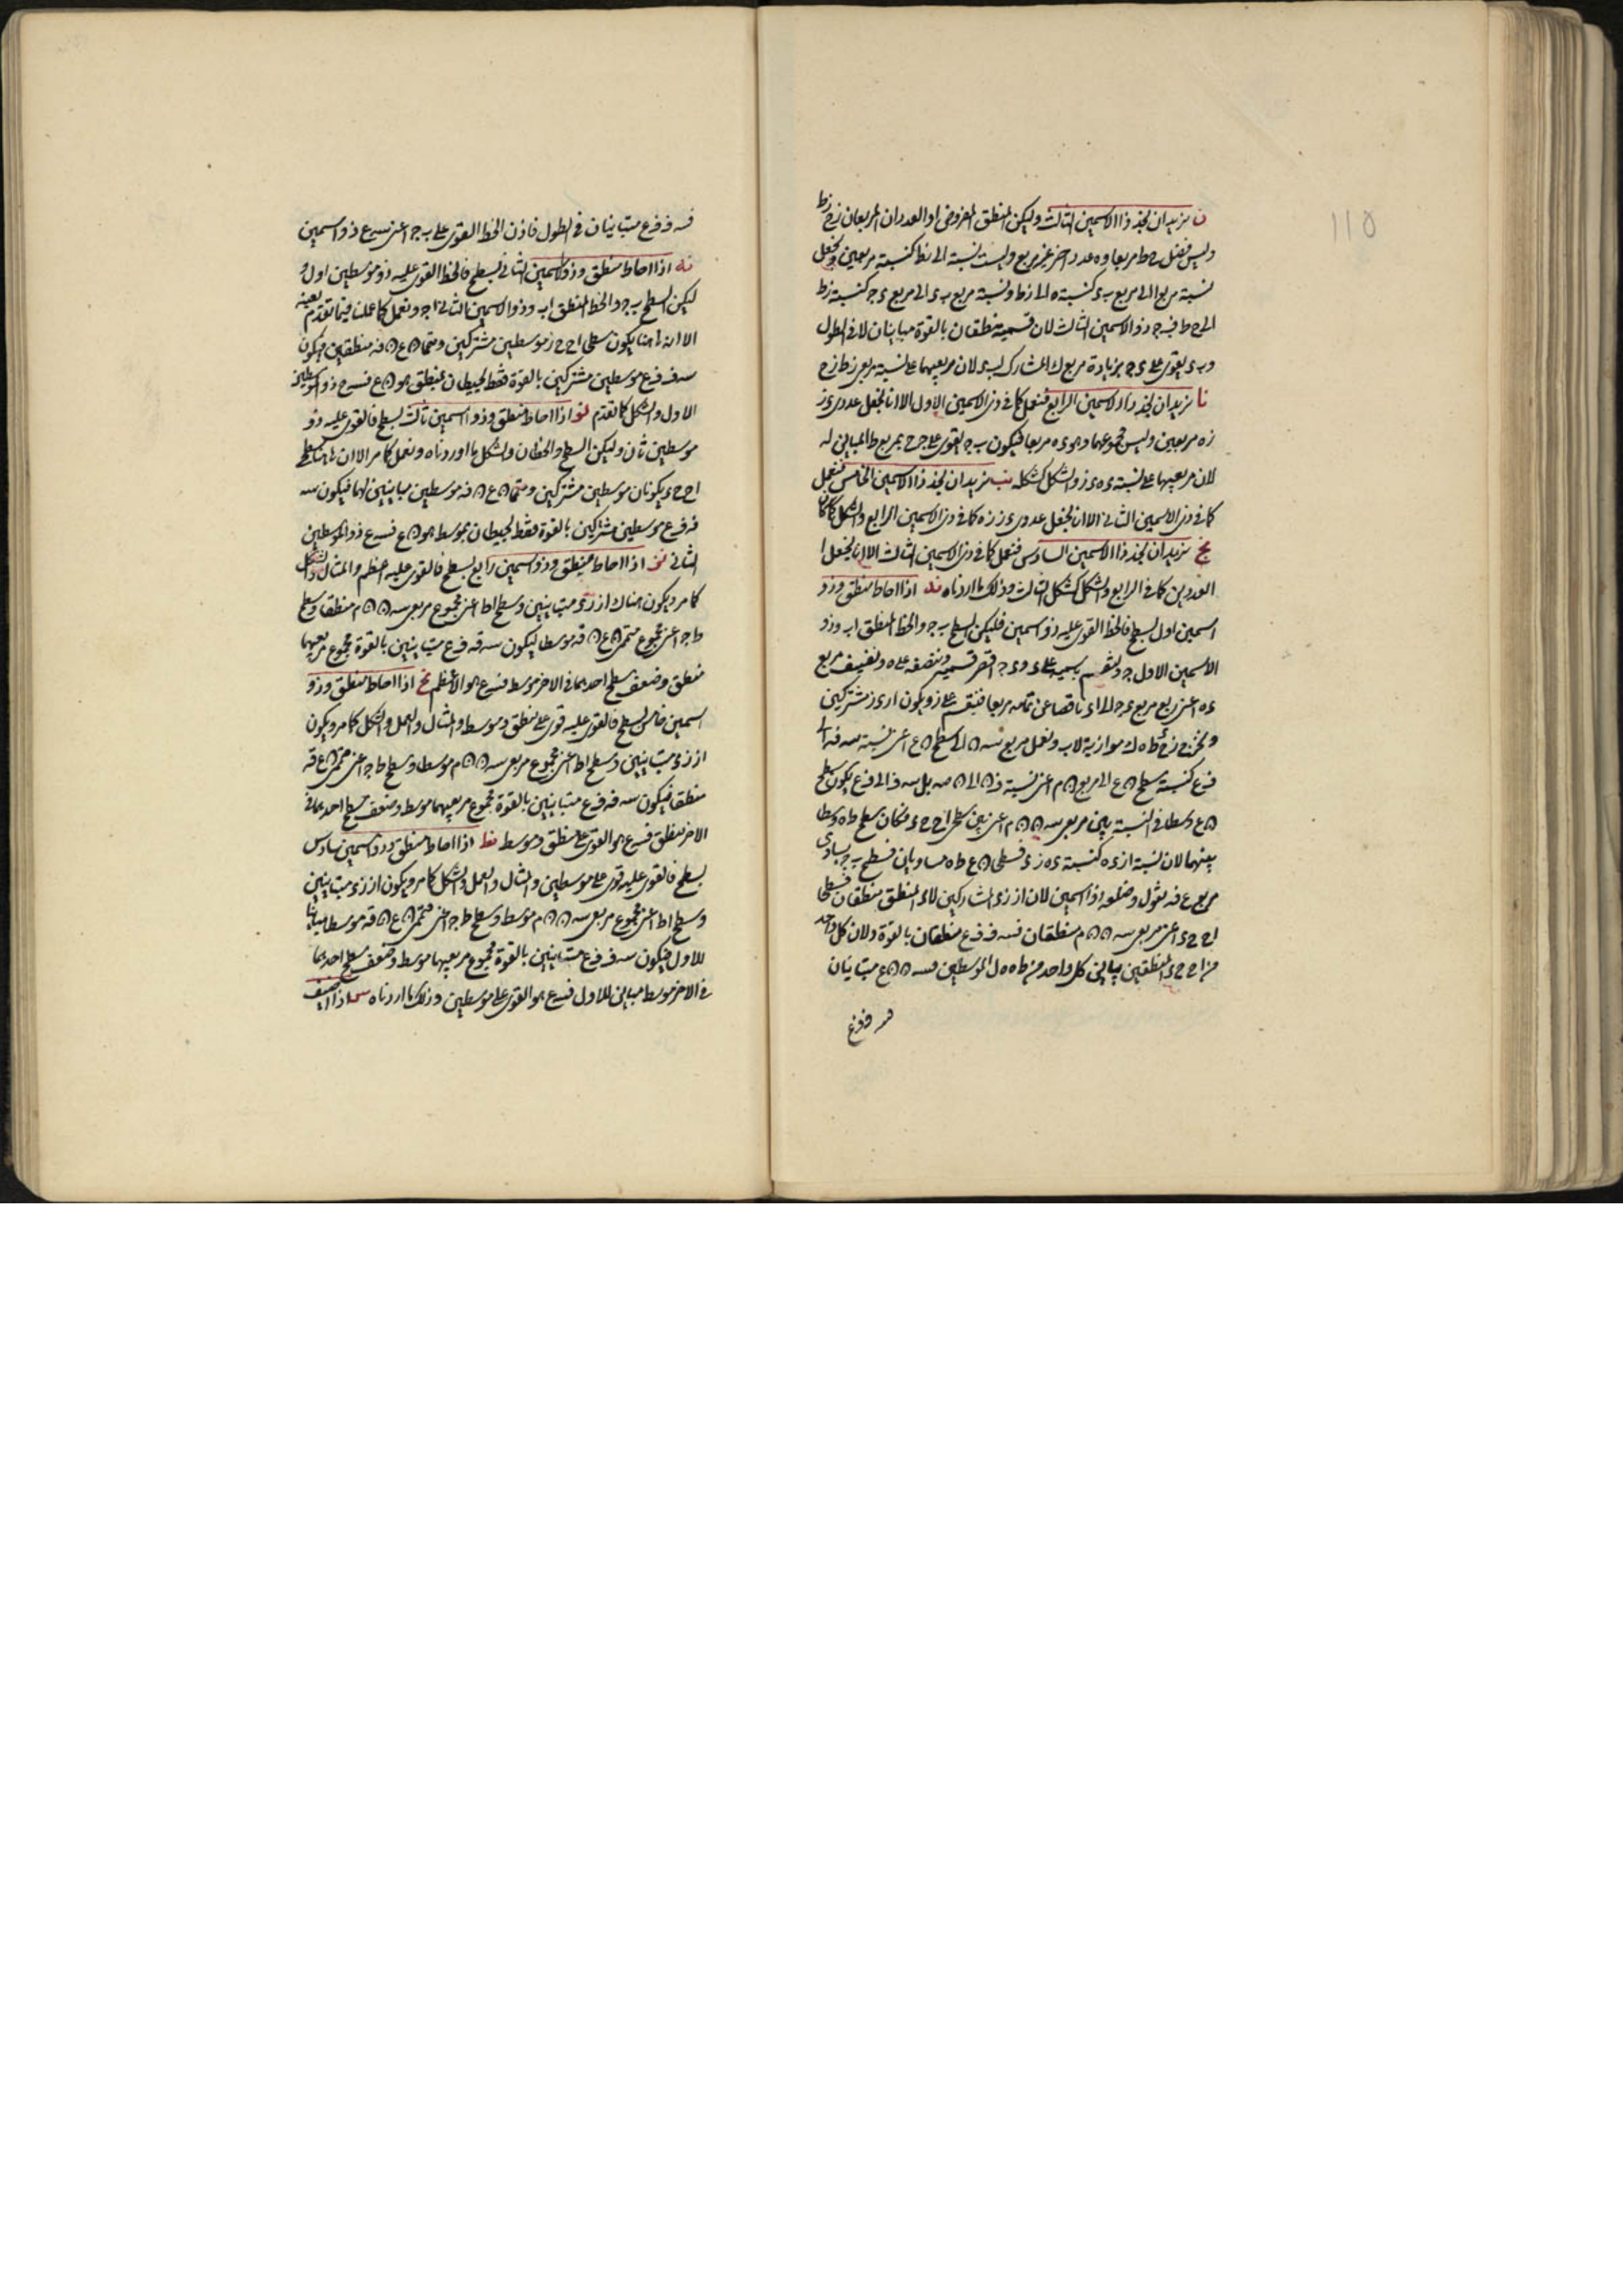 ن نريد ان نجد ذا الاسمين الثالث وليكن المنطق المفروض ا والعددان المربعان زح زط
وليس فضل ح ط مربعا و ه عدد اخر غير مربع وليست نسبته الى زط كنسبة مربعين ونجعل
نسبة مربع ا الى مربع ب ى كنسبة ه الى زط ونسبة مربع ب ى الى مربع ى ج كنسبة زط
الى ح ط فب ج ذو الاسمين الثالث لان قسميه منطقان بالقوة متباينان لا فى الطول
و ب ى يقوى على ى ج بزيادة مربع ك المشارك ل ب ى لان مربعيهما على نسبة مربعى زط زح
نا نريد ان نجد ذا الاسمين الرابع فنعمل كما فى ذى الاسمين الاول الا انا نجعل عددى ى ز
زه مربعين وليس مجموعهما وهو ى ه مربعا فيكون ب ج يقوى على ج ح بمربع ط المباين له
لان مربعيهما على نسبة ى ه ى ز والشكل كشكله نب نريد ان نجد ذا الاسمين الخامس فنعمل
كما فى ذى الاسمين الثانى الا انا نجعل عددى ى ز زه كما فى ذى الاسمين الرابع والشكل كما كان
نج نريد ان نجد ذا الاسمين السادس فنعمل كما فى ذى الاسمين الثالث الا انا نجعل
العددين كما فى الرابع والشكل كشكل الثالث وذلك ما اردناه ند اذا احاط منطق وذو
اسمين اول بسطح فالخط القوى عليه ذو اسمين فليكن السطح ب ج والخط المنطق اب وذو
الاسمين الاول ا ج ولنقسم بسميه على ى و ى ج اقصر قسميه وننصفه على ه ونضيف مربع
ى ه اعنى ربع مربع ى ج الى ا ى ناقصا عن تمامه مربعا فينقسم على ز ويكون ا ز ى ز مشتركين
ونخرج زح ى ط ه ك موازية لاب ونعمل مربع
فع كنسبة سطح ن ع الى مربع ن م اعنى نسبة
ن ع وسطا فى النسبة بين مربعى س ن ن م اعنى بين سطحى ا ح ح ى وكان سطح ط ه وسطا
بينهما لان نسبة ا ز ى ه كنسبة ى ه ز ى فسطحى ن ع ط ه متساويان فسطح ب ج يساوى
مربع ع ف نقول وضلعه ذو اسمين لان ا ز ز ى المشاركين لا ى المنطق منطقان فسطحا
ا ح ح ى اعنى مربعى س ن ن م منطقان فس ف فع منطقان بالقوة ولان كل واحد
من ا ح ح ى المنطقين يباين كل واحد من ط ه ه ل الموسطين فس ن ن ع متباينان
فس ف فع
١١٥
فس ف فع متباينان فى الطول فاذن الخط القوى على ب ج اعنى س ع ذو اسمين
نه اذا احاط منطق وذو اسمين الثانى بسطح فالخط القوى عليه ذو موسطين اول و
ليكن السطح ب ج والخط المنطق اب وذو الاسمين الثانى ا ج ونعمل كما عملنا فيما تقدم بعينه
الا ان هاهنا يكون سطحى ا ح ح ز موسطين مشتركين ومتمما ن ع ن ف منطقين فيكون
س ف فع موسطين مشتركين بالقوة فقط يحيطان بمنطق هو ن ع فس ع ذو الموسطين
الاول والشكل كما تقدم نو اذا احاط منطق وذو اسمين ثالث بسطح فالقوى عليه ذو
موسطين ثان وليكن السطح والخطان والشكل ما اوردناه ونعمل كما مر الا ان هاهنا سطحى
ا ح ح ى يكونان موسطين مشتركين ومتمما ن ع ن ف موسطين مباينين لهما فيكون س
ف فع موسطين مشتركين بالقوة فقط يحيطان بموسط هو ن ع فس ع ذو الموسطين
الثانى نز اذا احاط منطق وذو اسمين رابع بسطح فالقوى عليه اعظم والمثال والشكل
كما مر ويكون هناك ا ز ز ى متباينين وسطح ا ط اعنى مجموع مربعى س ن ن م منطقا وسطح
ط ج اعنى مجموع متممى ن ع ن ف موسطا فيكون س ف فع متباينين بالقوة مجموع مربعيهما
منطق وضعف سطح احدهما فى الاخر موسط فس ع هو الاعظم نح اذا احاط منطق وذو
اسمين خامس بسطح فالقوى عليه قوى على منطق وموسط والمثال والعمل والشكل كما مر ويكون
ا ز ز ى متباينين وسطح ا ط اعنى مجموع مربعى س ن ن م موسطا وسطح ط ج اعنى متممى ن ع ن ف
منطقا فيكون س ف فع متباينين بالقوة مجموع مربعيهما موسط وضعف سطح احدهما فى
الاخر منطق فس ع هو القوى على منطق وموسط نط اذا احاط منطق وذو اسمين سادس
بسطح فالقوى عليه قوى على موسطين والمثال والعمل والشكل كما مر ويكون ا ز ز ى متباينين
وسطح ا ط اعنى مجموع مربعى س ن ن م موسط وسطح ط ج اعنى متممى ن ع ن ف موسطا مباينا
للاول فيكون س ف فع متباينين بالقوة مجموع مربعيهما موسط وضعف سطح احدهما
فى الاخر موسط مباين للاول فس ع هو القوى على موسطين وذلك ما اردناه س اذا اضيف